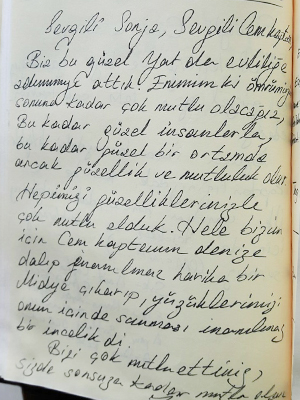 Sevgili Sonja, Sevgili Cem Kaptan
Biz bu güzel Yat'da evliliğe
adımımızı attık. Eminim ki ömrümüzün
sonuna kadar çok mutlu olacağız,
Bu kadar güzel insanlarla,
bu kadar güzel bir ortamda
ancak güzellik ve mutluluk olur
Hepimizi güzelliklerinizle
çok mutlu olduk. Hele bizim
için Cem kaptanın denize
dalıp inanılmaz harika bir
Midye çıkarıp, yüzüklerimizi
onun içinde sunması inanılmaz
bir incelikdi.
Bizi çok mutlu ettiniz,
sizde sonsuza kadar mutlu olun